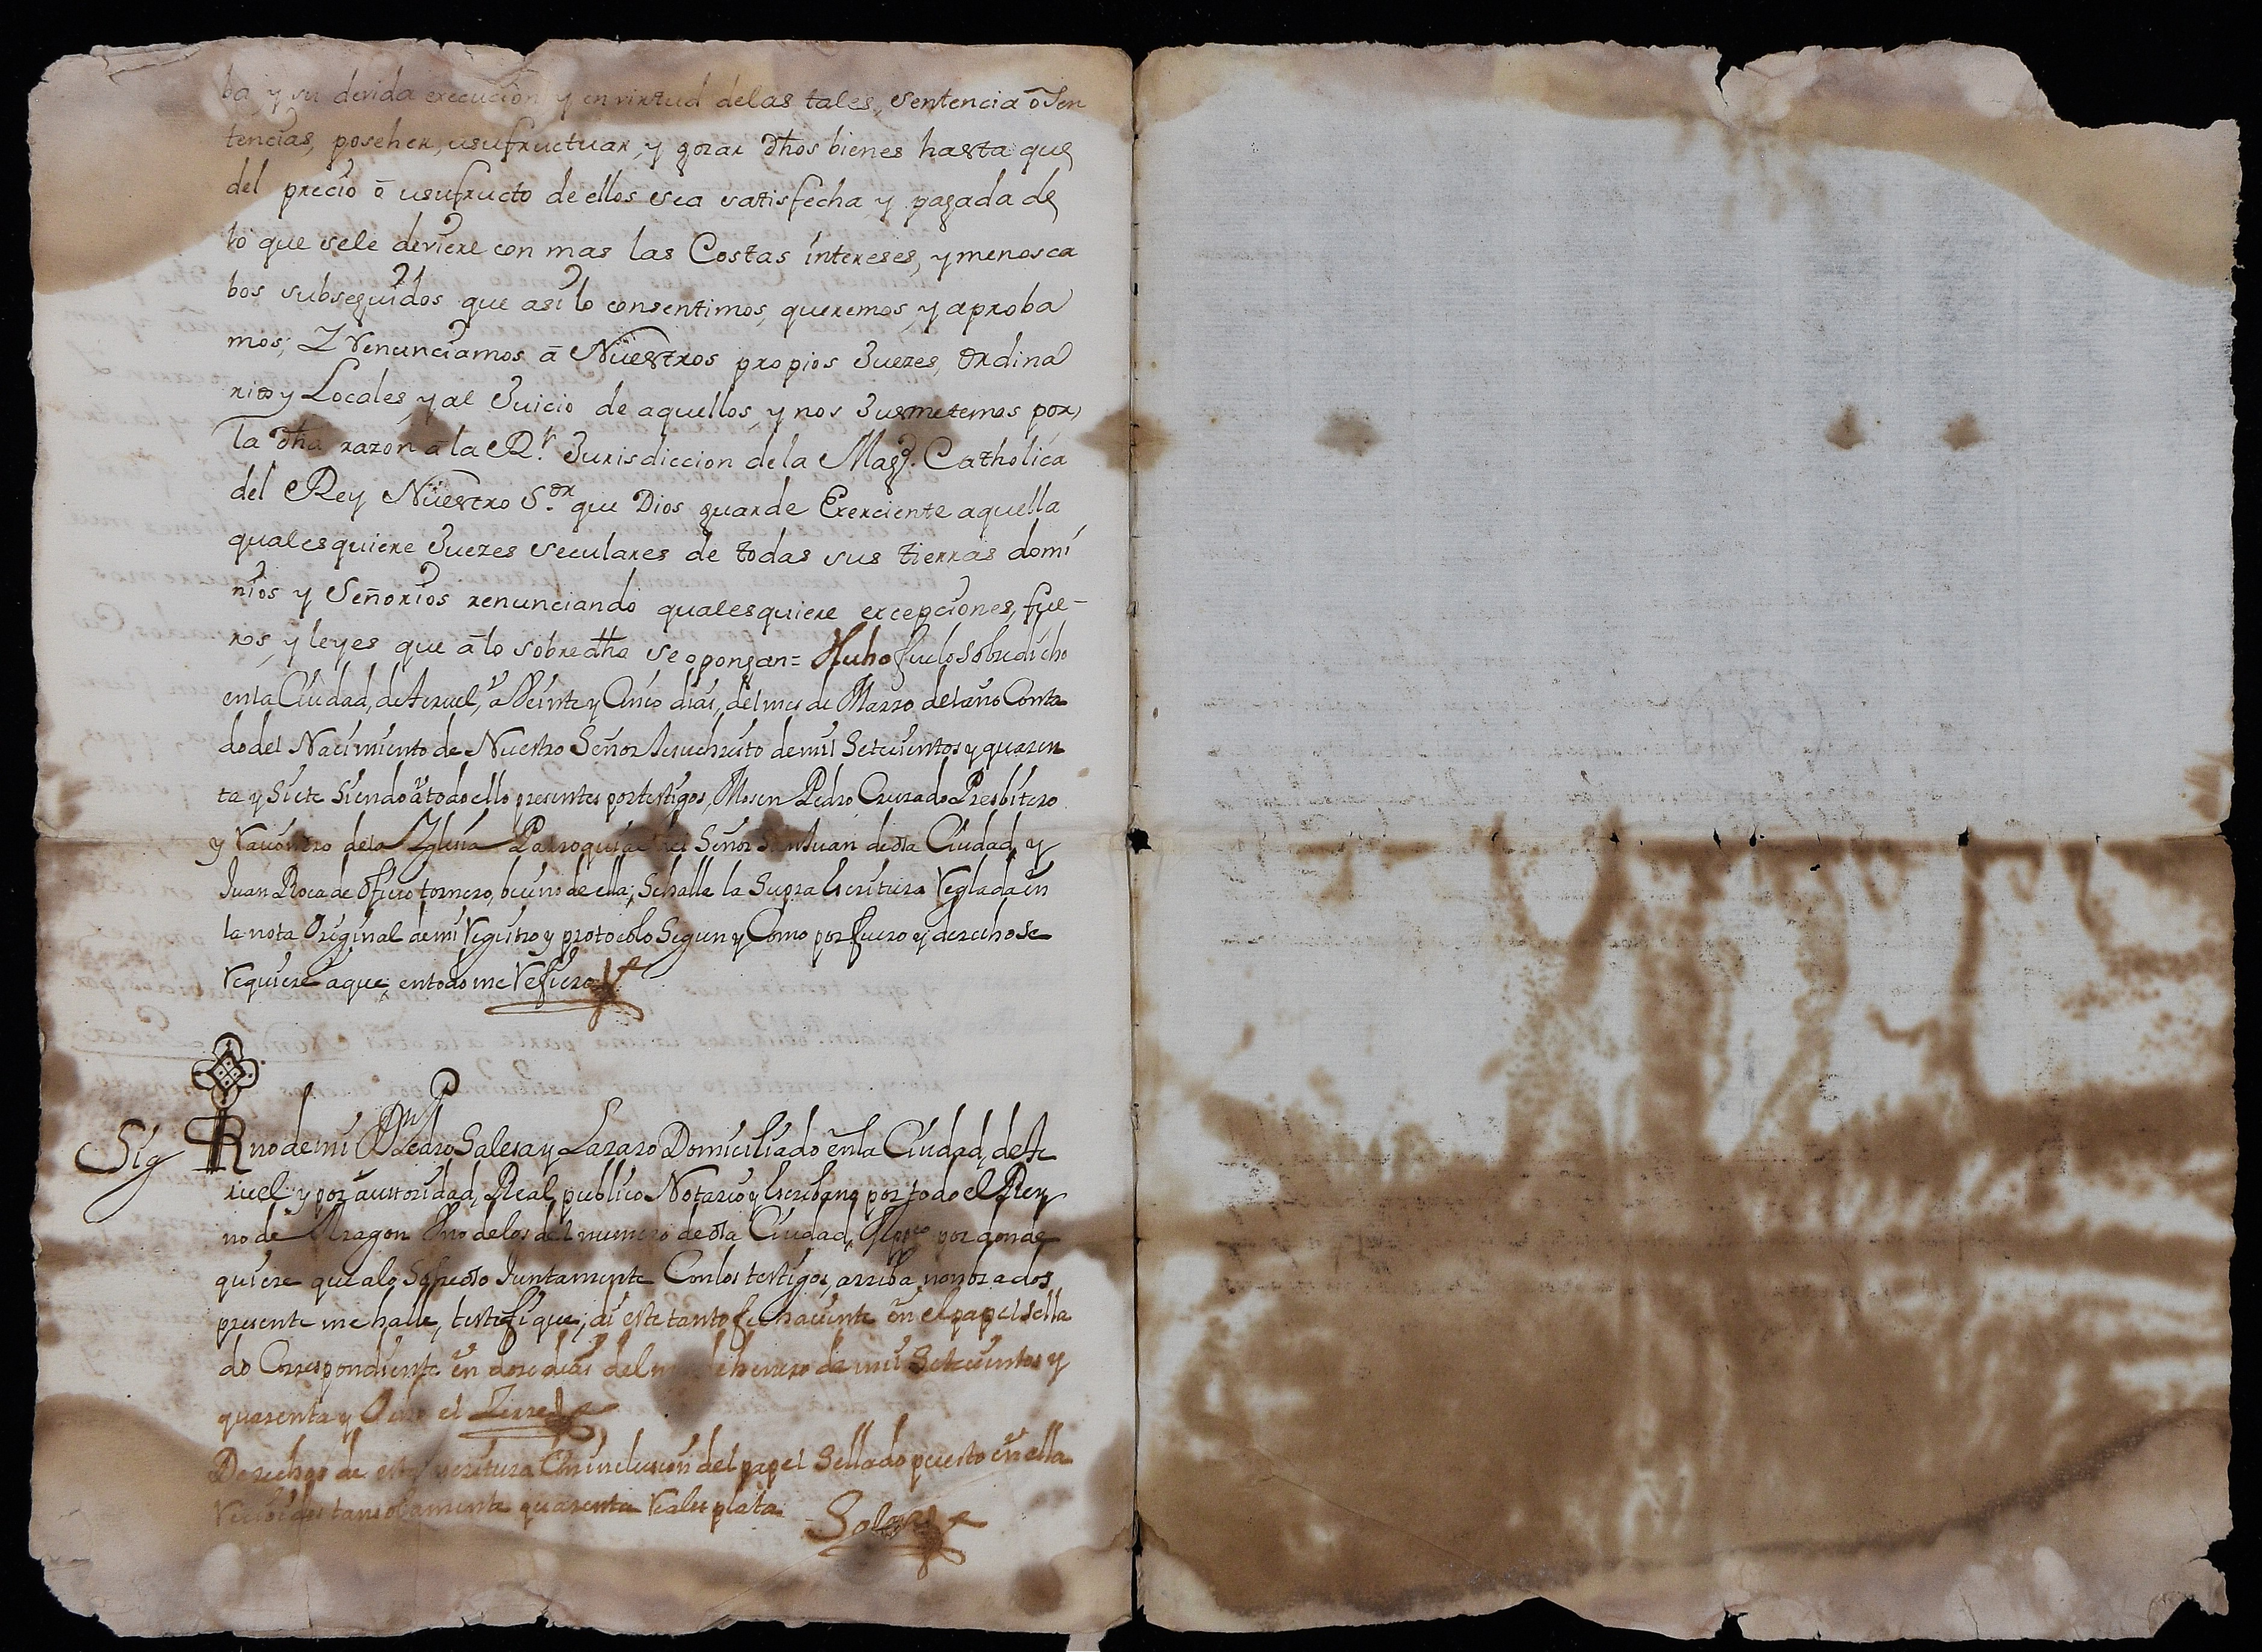 ba, y su devida execucion y en virtud delas tales, sentencia ō sen
tencias, poseher, usufructuar, y gozar dhos bienes hasta que
del precio ō usufructo de ellos sea satisfecha y pagada de
lo que sele deviere con mas las Costas intereses, y menosca
bos subseguidos que asi lo consentimos, queremos, y aproba
mos; Y renunciamos ā Nuestros propios Juezes, ordina
rios y Locales, y al Juicio de aquellos, y nos Jusmetemos por
la dha razon ā la Rl. Jurisdiccion dela Magd. Catholica
del Rey Nuestro Sor. que Dios guarde Exerciente aquella
qualesquiere Juezes seculares de todas sus tierras domi
nios y Señorios renunciando qualesquiere excepciones, fue-
ros, y leyes que ā lo sobredho se opongan= Hecho fue lo sobredicho
en la Ciudad, de Teruel, ā Veinte y Cinco dias, del mes de Marzo, del año Conta
do del Nacimiento de Nuestro Señor Jesuchristo de mil Setecientos y quaren
ta y Siete Siendo ā todo ello presentes por testigos, Mosen Pedro Cruzado Presbitero
y Racionero dela Yglesia Parroquial del Señor San Juan de dha Ciudad, y
Juan Roca de Oficio tornero, vecino de ella; Se halle la Supra Escritura Reglada en
la nota Original de mi Registro y protocolo Segun y Como por fuero y derecho se
requiere a que, en todo me Refiero
Sig no de mi Dn Pedro Salesa y Lazaro Domiciliado en la Ciudad, de Te
ruel y por auttoridad, Real, publico Notario y Escribano por todo el Rey
no de Aragon Uno delos del numero de dha Ciudad, por donde
quiere que a lo Sobredho Juntamente Con los testigos, arriba nombrados
presente me halle, testifique; di este tanto fee haciente en el papel sella
do Correspondiente en doze dias del mes de henero de mil Setecientos y
quarenta y Ocho et Zerre
Derechos de esta escritura Con inclusion del papel Sellado puesto en ella
Recividos tan solamente quarenta Reales plata
Salesa